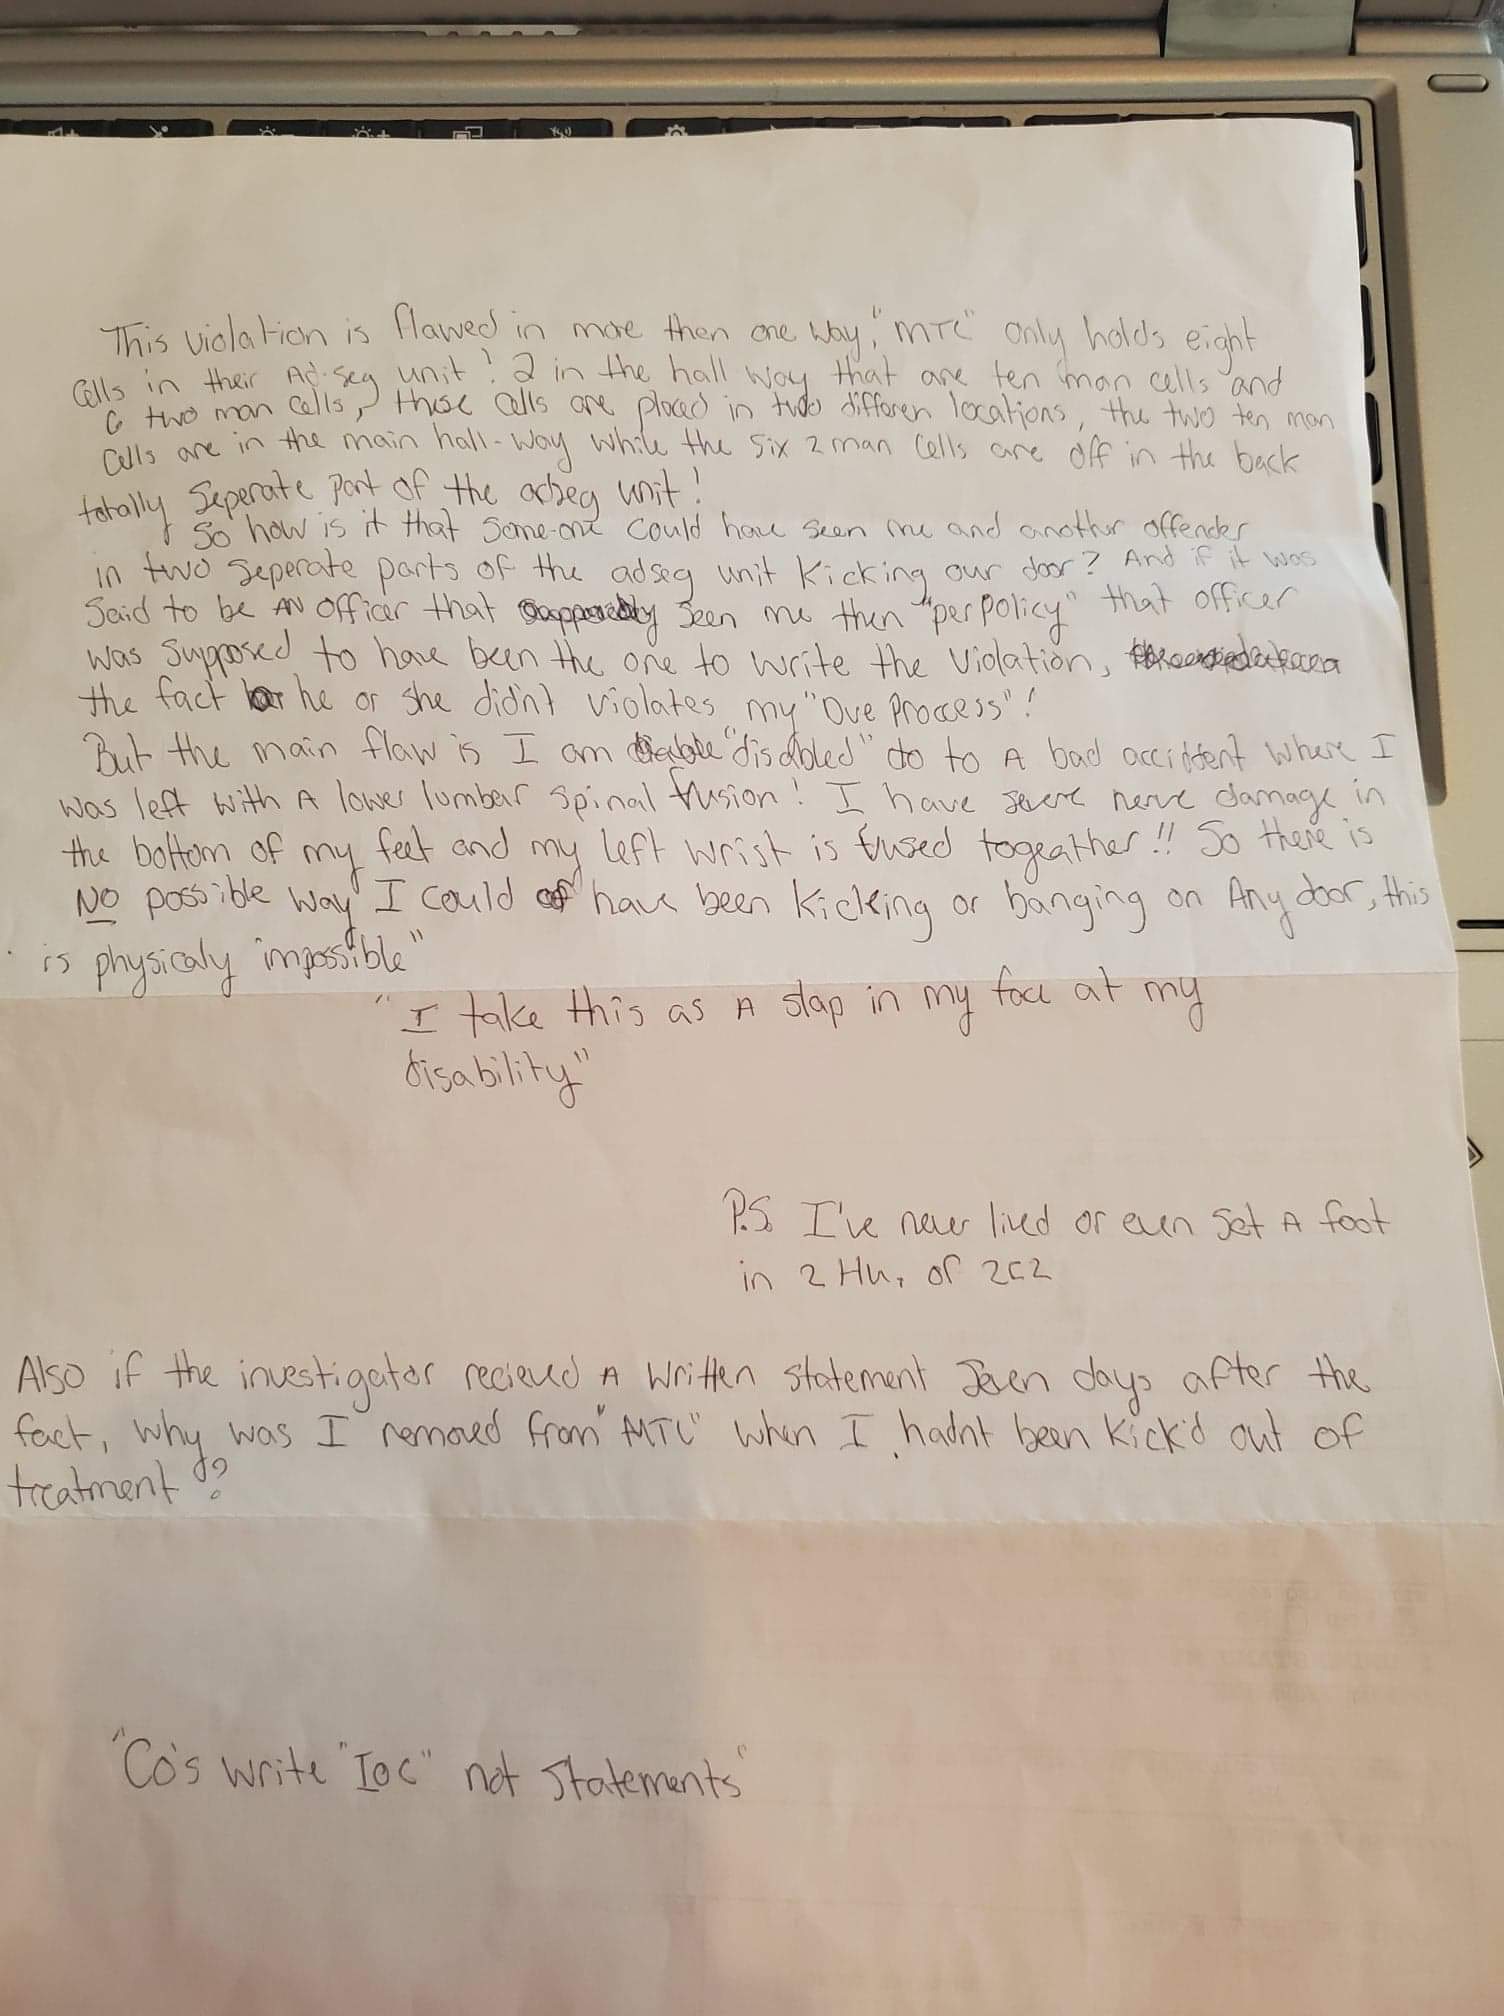 This violation is flawed in more then one way, "MTC" only holds eight
Cells in their Ad-Seg unit! 2 in the hall way that are ten man cells and
6 two man cells, these cells are placed in two differen locations, the two ten man
Cells are in the main hall-way while the Six 2 man Cells are off in the back
totally Seperate part of the adseg unit!
So how is it that Some-one could have seen me and another offender
in two seperate parts of the adseg unit Kicking our door? And if it was
Said to be AN officer that seen me then "per policy" that officer
was Supposed to have been the one to write the violation,
the fact he or she didn't violates my "Due Process"!
But the main flaw is I am "disabled" do to A bad accident where I
was left with A lower lumbar Spinal fusion! I have severe nerve damage in
the bottom of my feet and my left wrist is fused togeather!! So there is
NO possible way I could have been Kicking or banging on Any door, this
is physicaly impossible"
"I take this as A slap in my face at my
disability"
P.S. I've never lived or even set A foot
in 2 Hu, of 2C2
Also if the investigator recieved A Written statement Seven days after the
fact, why was I removed from "MTC" when I hadnt been Kick'd out of
treatment?
"Co's write "Ioc" not Statements"